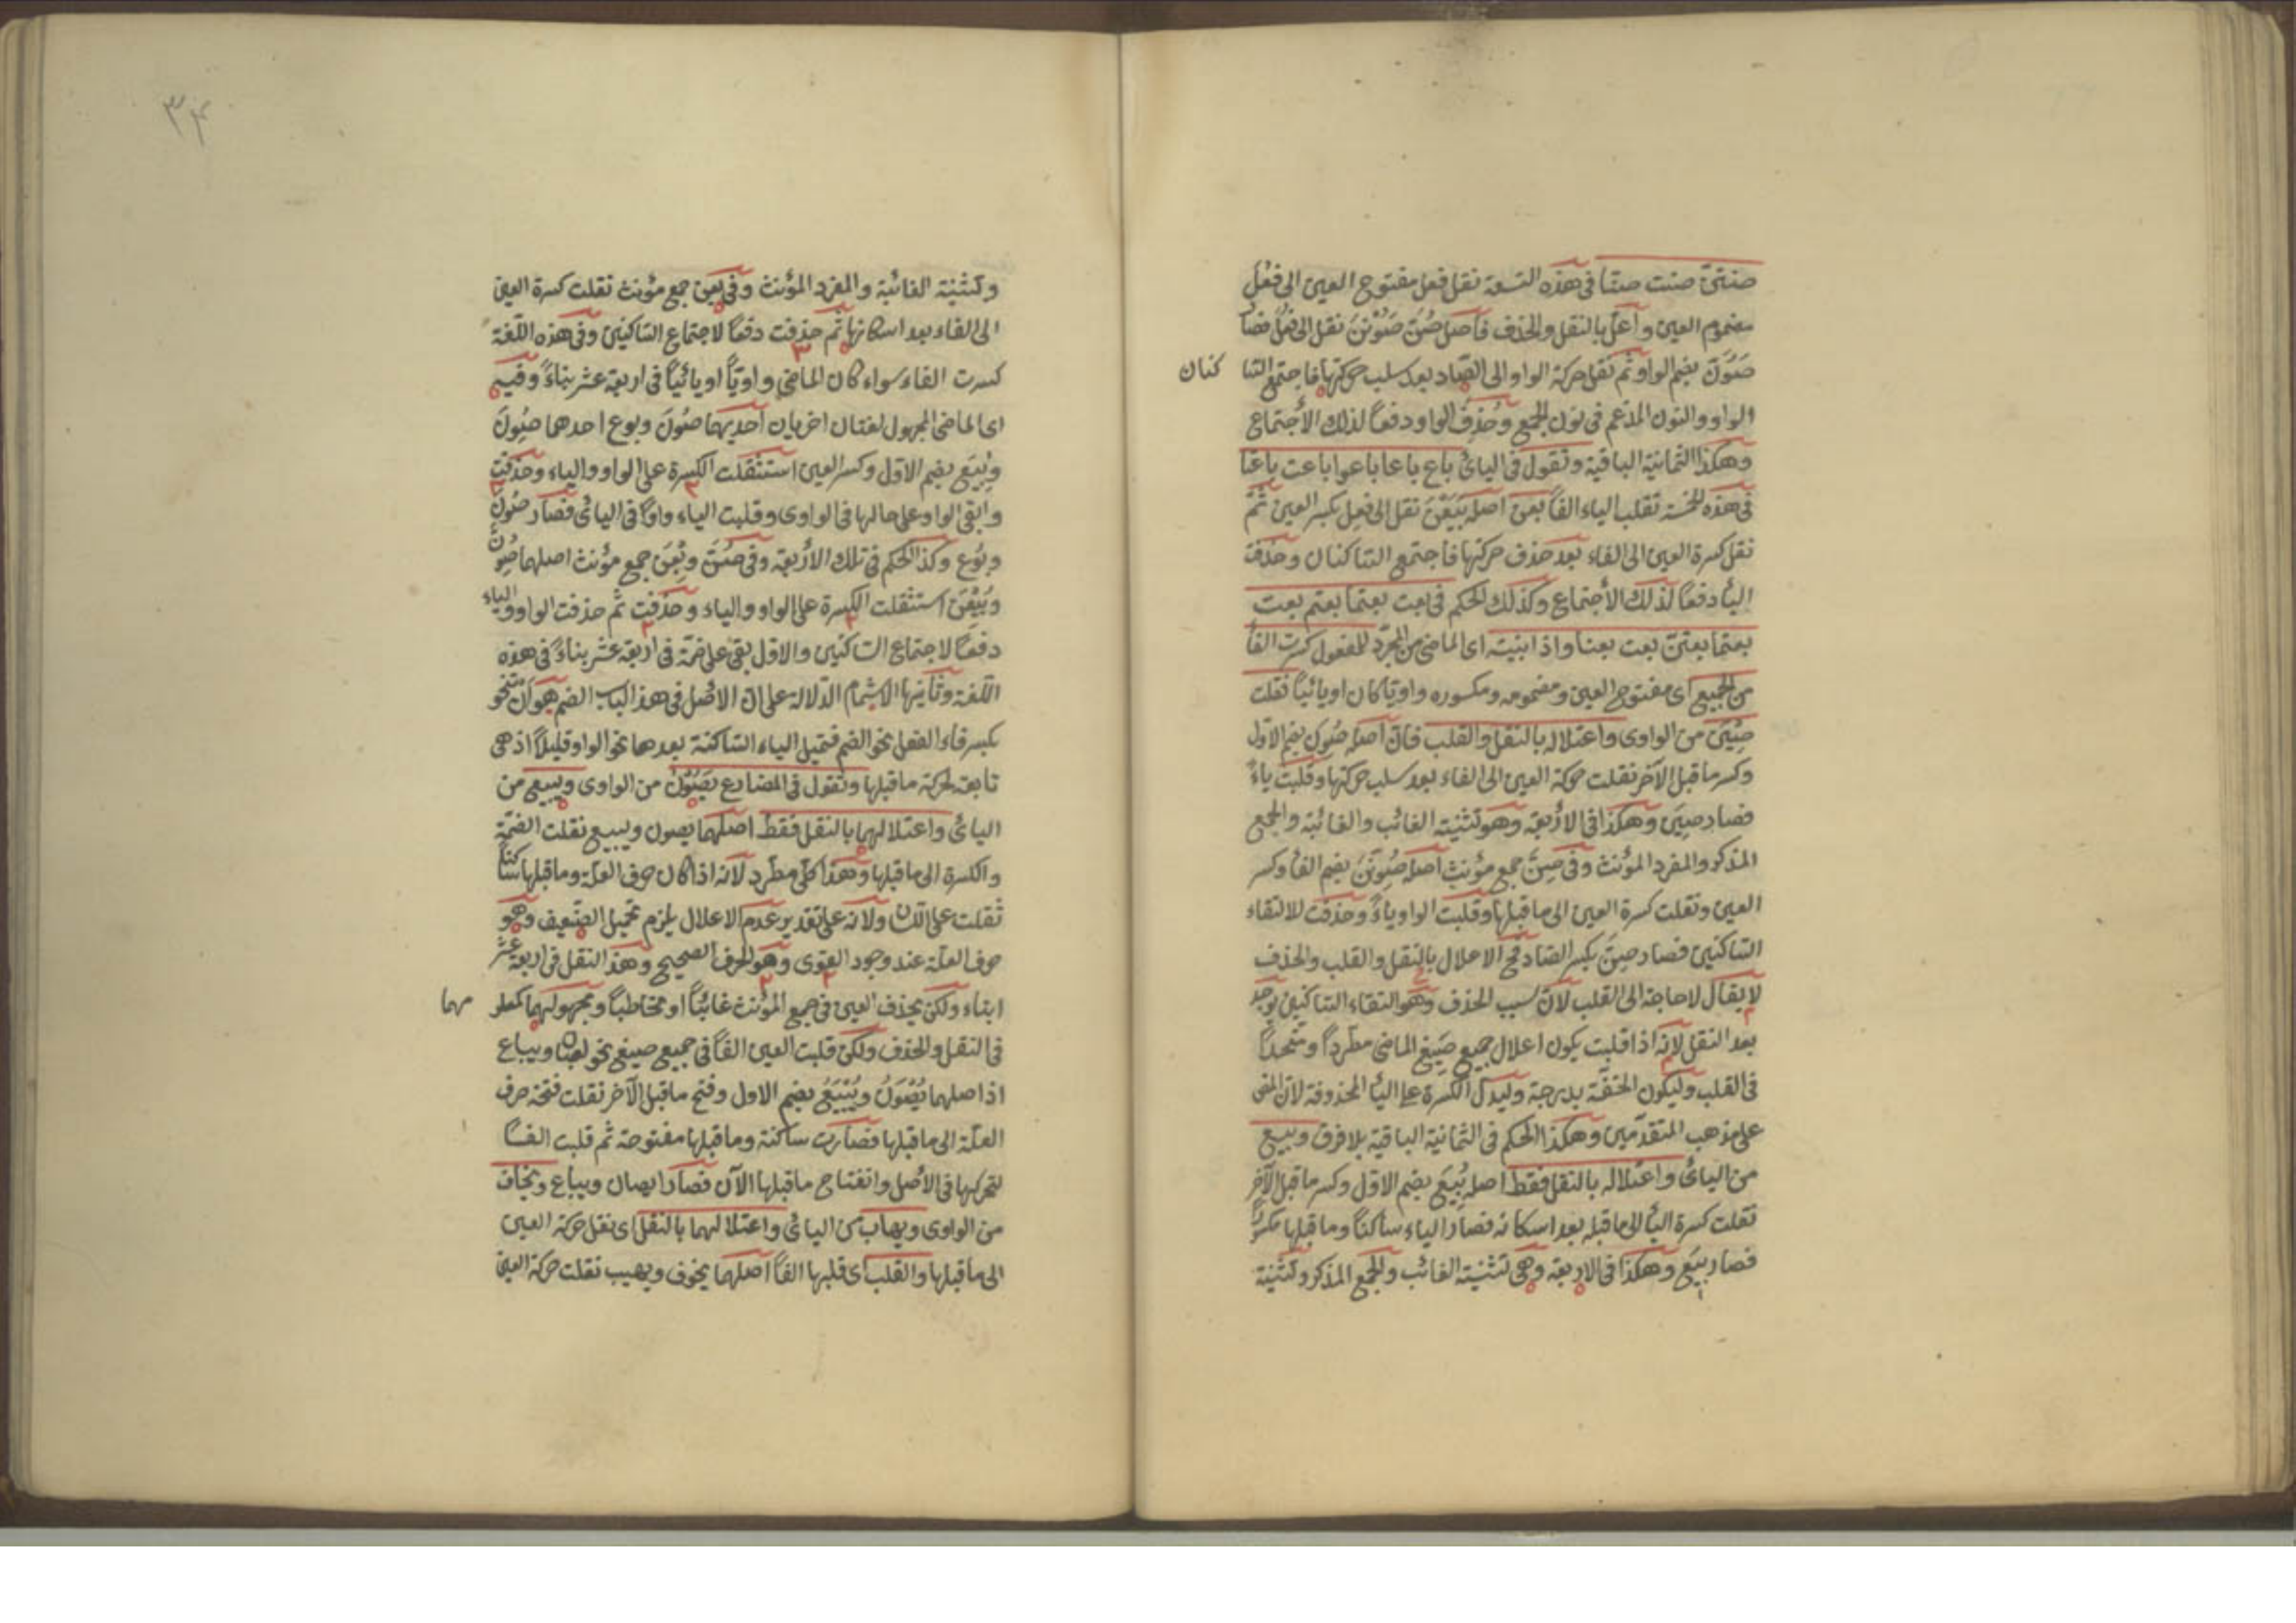 صنتنّ صنت صنّا فى هذه التسعة نقل فعل مفتوح العين الى فعُل
مضموم العين و اُعلّ بالنقل والحذف فاصل صُنّ صَوُنْنَ نقل الى فعُل فصار
صَوُنّ بضم الواو ثم نقل حركة الواو الى الصّاد بعد سلب حركتها فاجتمع السّا كنان
الواو والنون المدّغم فى نون الجمع وحُذِفَ الواو دفعًا لذلك الأجتماع
وهكذا الثمانية الباقية وتقول فى اليائ باع باعا باعوا باعت باعتا
فى هذه الخمسة تقلب الياء الفًا بعن اصله بَيَعْنَ نقل الى فعِل بكسر العين ثمّ
نقل كسرة العين الى الفاء بعد حذف حركتها فاجتمع السّاكنان وحذفت
اليأ دفعًا لذلك الأجتماع وكذلك الحكم فى بعت بعتما بعتم بعت
بعتما بعتنّ بعت بعنا واذا بنيته اى الماضى من المجرّد للمفعول كسرت الفأ
من الجميع اى مفتوح العين ومضمومه ومكسوره واويًا كان او يائيًا فقلت
صِيْنَ من الواوى واعتلاله بالنقل والقلب فانّ اصله صُوِن بضم الاوّل
وكسر ماقبل الآخر نقلت حركة العين الى الفاء بعد سلب حركتها وقلبت ياءً
فصار صِيَن وهكذا فى الاربعة وهو تثنية الغائب والغائبة والجمع
المذكر والمفرد المؤنث وفى صِنَّ جمع مؤنث اصله صُوِنْنَ بضم الفأ وكسر
العين ونقلت كسرة العين الى ماقبلها وقلبت الواو ياءً وحذفت لالتقاء
السّاكنين فصار صِنَّ بكسر الصّاد فح الاعلال بالنقل والقلب والحذف
لا يقال لا حاجة الى القلب لانّ سبب الحذف وهو التقاء السّاكنين يوجد
بعد النقل لانّه اذا قلبت يكون اعلال جميع صيغ الماضى مطّردًا ومتّحدًا
فى القلب وليكون الخفّة بدرجة وليدلّ الكسرة على اليأ المحذوفة لانّ المبنى
على مذهب المتقدّمين وهكذا الحكم فى الثمانية الباقية بلا فرق وبيع
من اليائ واعتلاله بالنقل فقط اصله بُيِعَ بضم الاوّل وكسر ماقبل الآخر
نقلت كسرة اليأ الى ماقبله بعد اسكانه فصار الياء ساكنًا وماقبلها مكسورًا
فصار بِيَعَ وهكذا فى الاربعة وهى تثنية الغائب والجمع المذكر وتثنية
٣٤
وتثنية الغائبة والمفرد المؤنث وفى بِعن جمع مؤنث نقلت كسرة العين
الى الفاء بعد اسكانها ثم حذفت دفعًا لاجتماع السّاكنين وفى هذه اللّغة
كسرت الفاء سواء كان الماضى واويًا او يائيًا فى اربعة عشر بناءً وفيه
اى الماضى المجهول لغتان اخريان احديهما صُونَ وبوع احدهما صُوِنَ
وبُيِعَ بضم الاوّل وكسر العين استثقلت الكسرة على الواو والياء وحذفت
وابقى الواو على حالها فى الواوى وقلبت الياء واوًا فى اليائ فصار صُونَ
وبُوع وكذا الحكم فى تلك الاربعة وفى صُنّ وبُعن جمع مؤنث اصلهما صُوِنَّ
وبُيِعْنَ استثقلت الكسرة على الواو والياء وحذفت ثم حذفت الواو والياء
دفعًا لاجتماع السّاكنين والاوّل بقى على ضمّة فى اربعة عشر بناءً فى هذه
اللّغة وثانيها الاشمام الدّلالة على انّ الاصل فى هذا الباب الضم هو ان تنحو
بكسر فاء الفعل نحو الضم فتميل الياء السّاكنة بعدها نحو الواو قليلًا اذ هى
تابعة لحركة ماقبلها وتقول فى المضارع يَصُونُ من الواوى ويبيع من
اليائ واعتلالهما بالنقل فقط اصلهما يصون ويبيع نقلت الضمّة
والكسرة الى ماقبلها وهذا كلّى مطّرد لانّه اذا كان حرف العلّة وماقبلها ساكنًا
ثقلت على اللّسان ولانّه على تقدير عدم الاعلال يلزم تحميل الضّعيف وهو
حرف العلّة عند وجود القوى وهو الحرف الصحيح وهذا النقل فى اربعة عشر
ابناء ولكن يحذف العين فى جمع المؤنث غائبًا او مخاطبًا ومجهولهما كمعلو مهما
فى النقل والحذف ولكن قلبت العين الفًا فى جميع صيغ نحو يصان ويباع
اذ اصلهما يُصْوَنُ ويُبْيَعُ بضم الاول وفتح ماقبل الآخر نقلت فتحة حرف
العلّة الى ماقبلها فصارت ساكنة وماقبلها مفتوحة ثم قلبت الفًا
لتحركها فى الأصل وانفتاح ماقبلها الآن فصارا يصان ويباع ويخاف
من الواوى ويهاب من اليائ واعتلالهما بالنقل اى نقل حركة العين
الى ماقبلها والقلب اى قلبها الفًا اصلهما يخوف ويهيب نقلت حركة العين